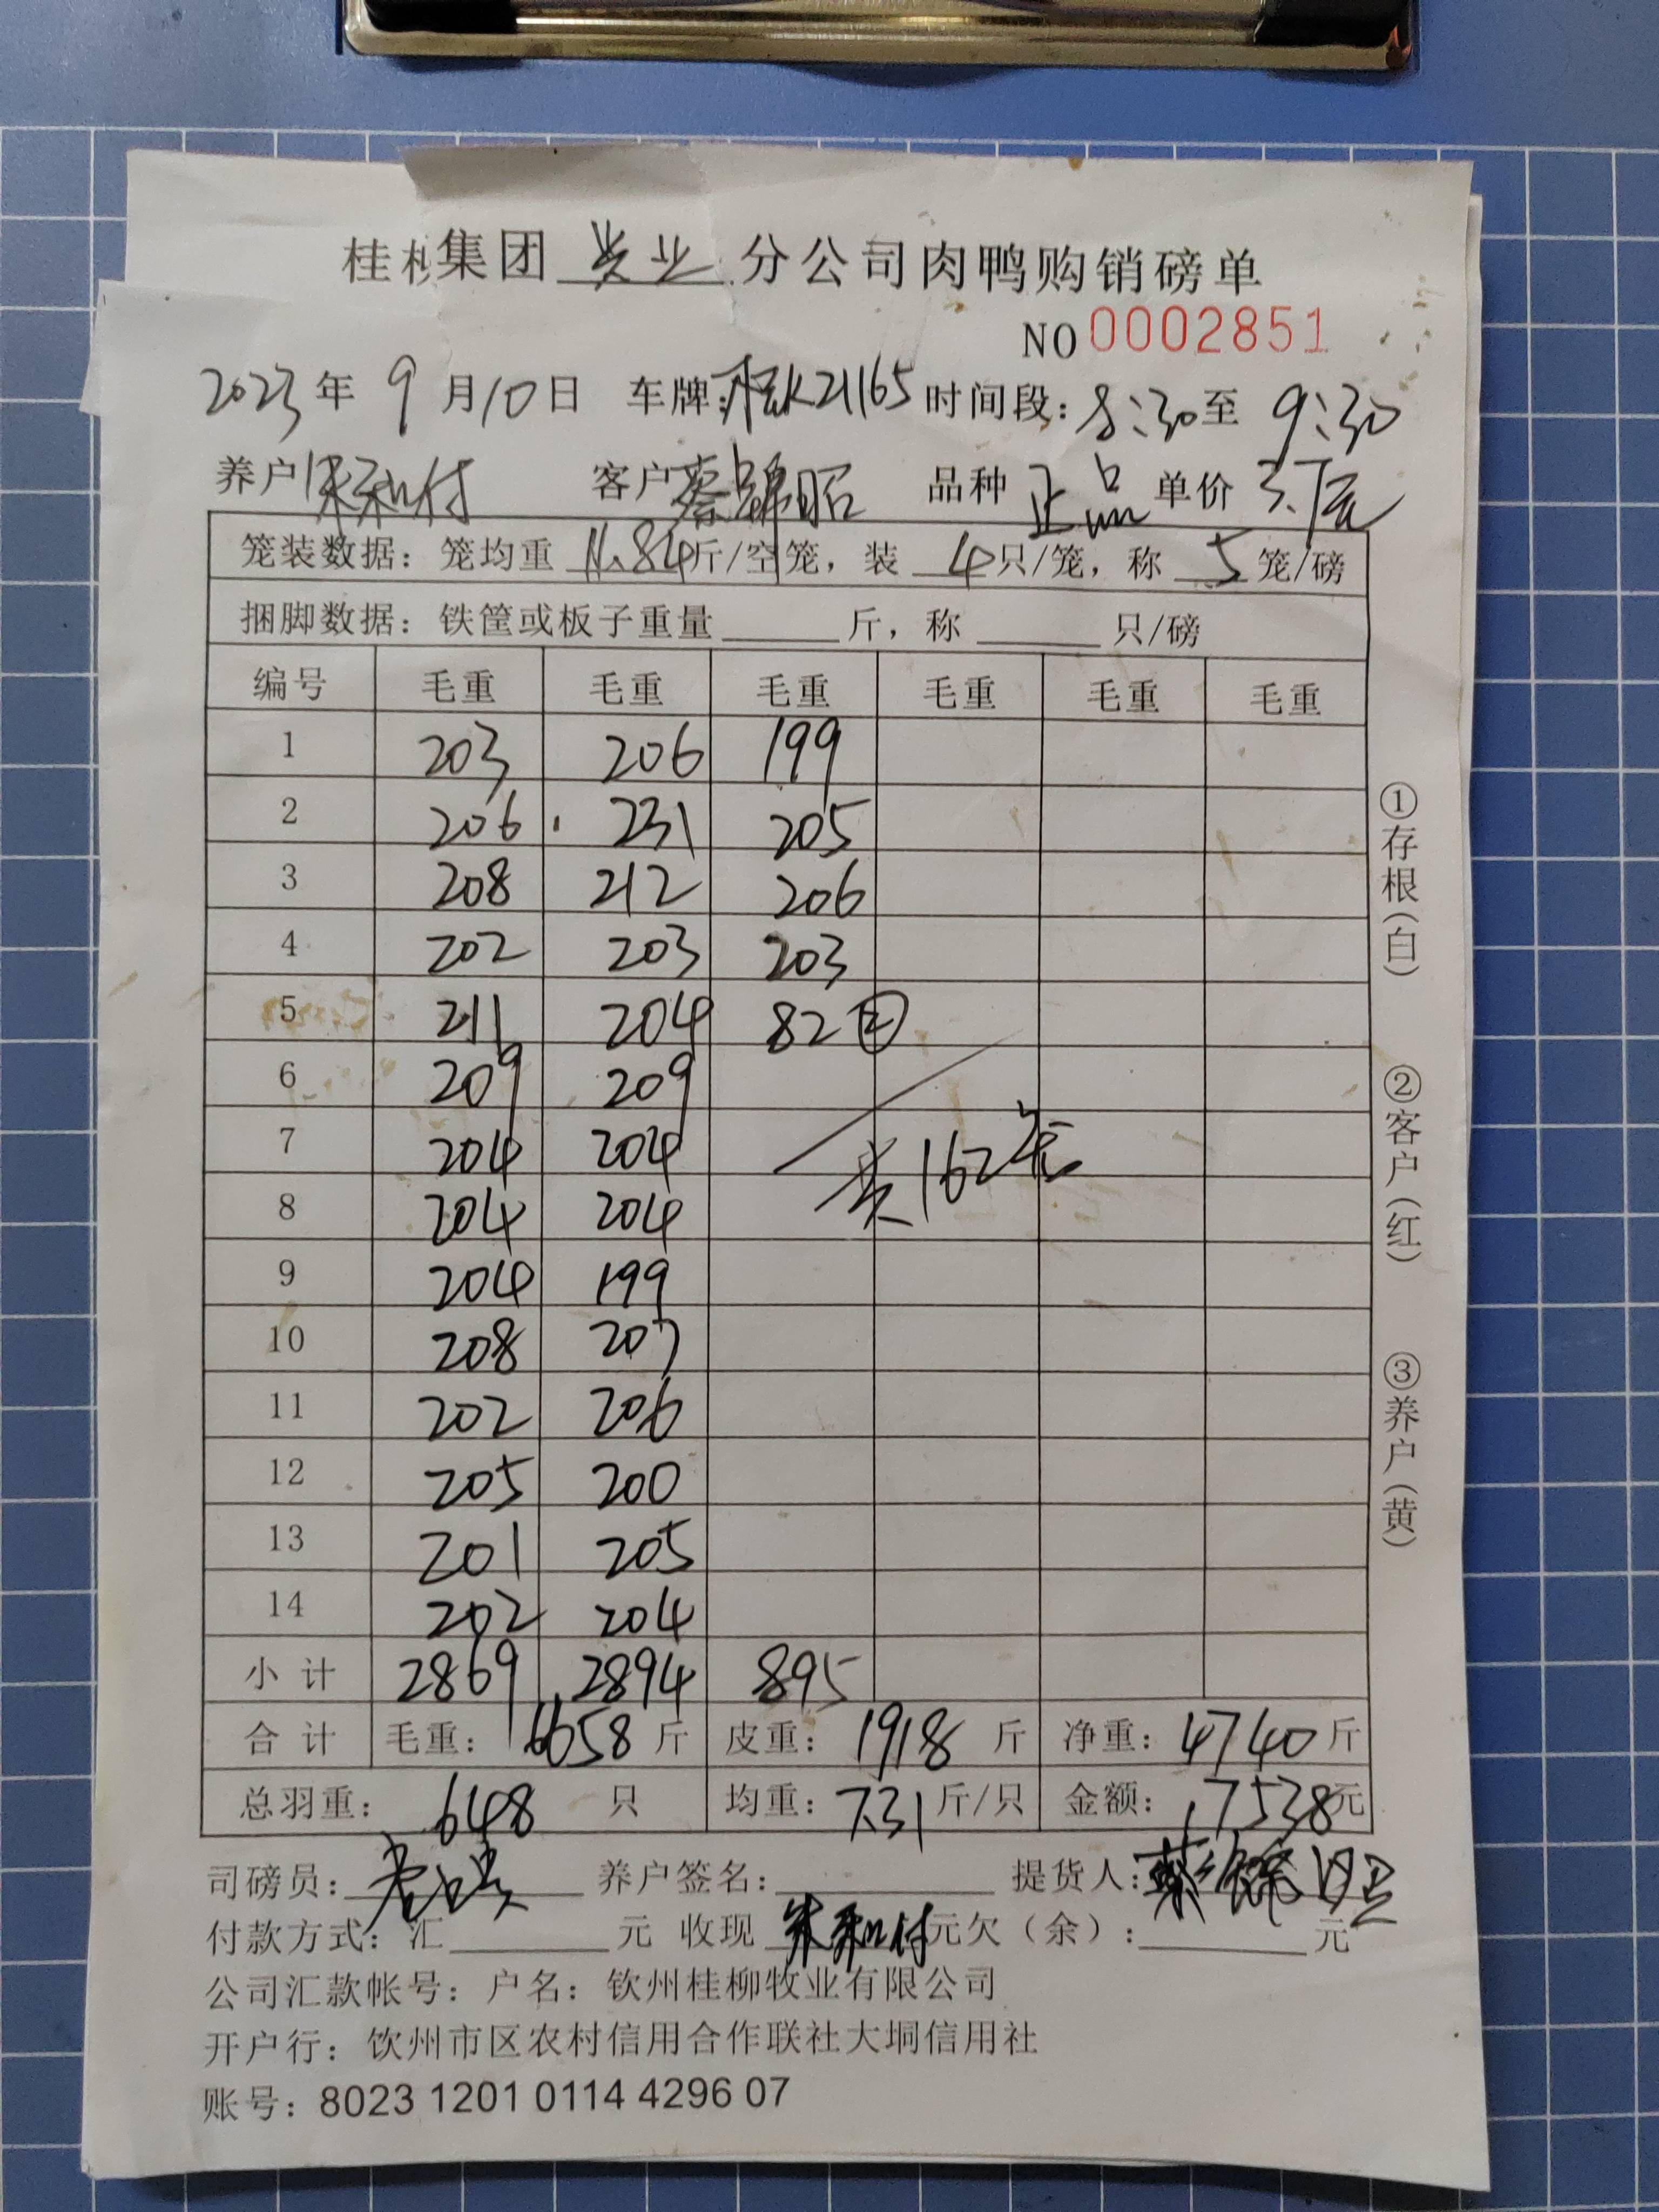 桂柳集团 兴业 分公司肉鸭购销磅单
NO 0002851
2023年 9月10日 车牌:桂K21165 时间段:8:30至 9:30
养户 朱和付 客户 蔡锦昭 品种 正品 单价 3.7元
笼装数据:笼均重 11.84斤/空笼,装 4只/笼,称 5 笼/磅
捆脚数据:铁筐或板子重量______斤,称______只/磅
编号 毛重 毛重 毛重 毛重 毛重 毛重
1 203 206 199
2 206 231 205
3 208 212 206
4 202 203 203
5 211 204 82 ②
6 209 209
7 204 204
共162笼
8 204 204
9 204 199
10 208 207
11 202 206
12 205 200
13 201 205
14 202 204
小计 2869 2894 895
合计 毛重:6658斤 皮重:1918斤 净重:4740斤
总羽重:648 只 均重:7.31斤/只 金额:17538元
司磅员: 养户签名: 提货人:蔡锦昭
付款方式:汇______元 收现 朱和付 元欠(余):______元
公司汇款帐号:户名:钦州桂柳牧业有限公司
开户行:钦州市区农村信用合作联社大垌信用社
账号:8023 1201 0114 4296 07
①存根(白)
②客户(红)
③养户(黄)